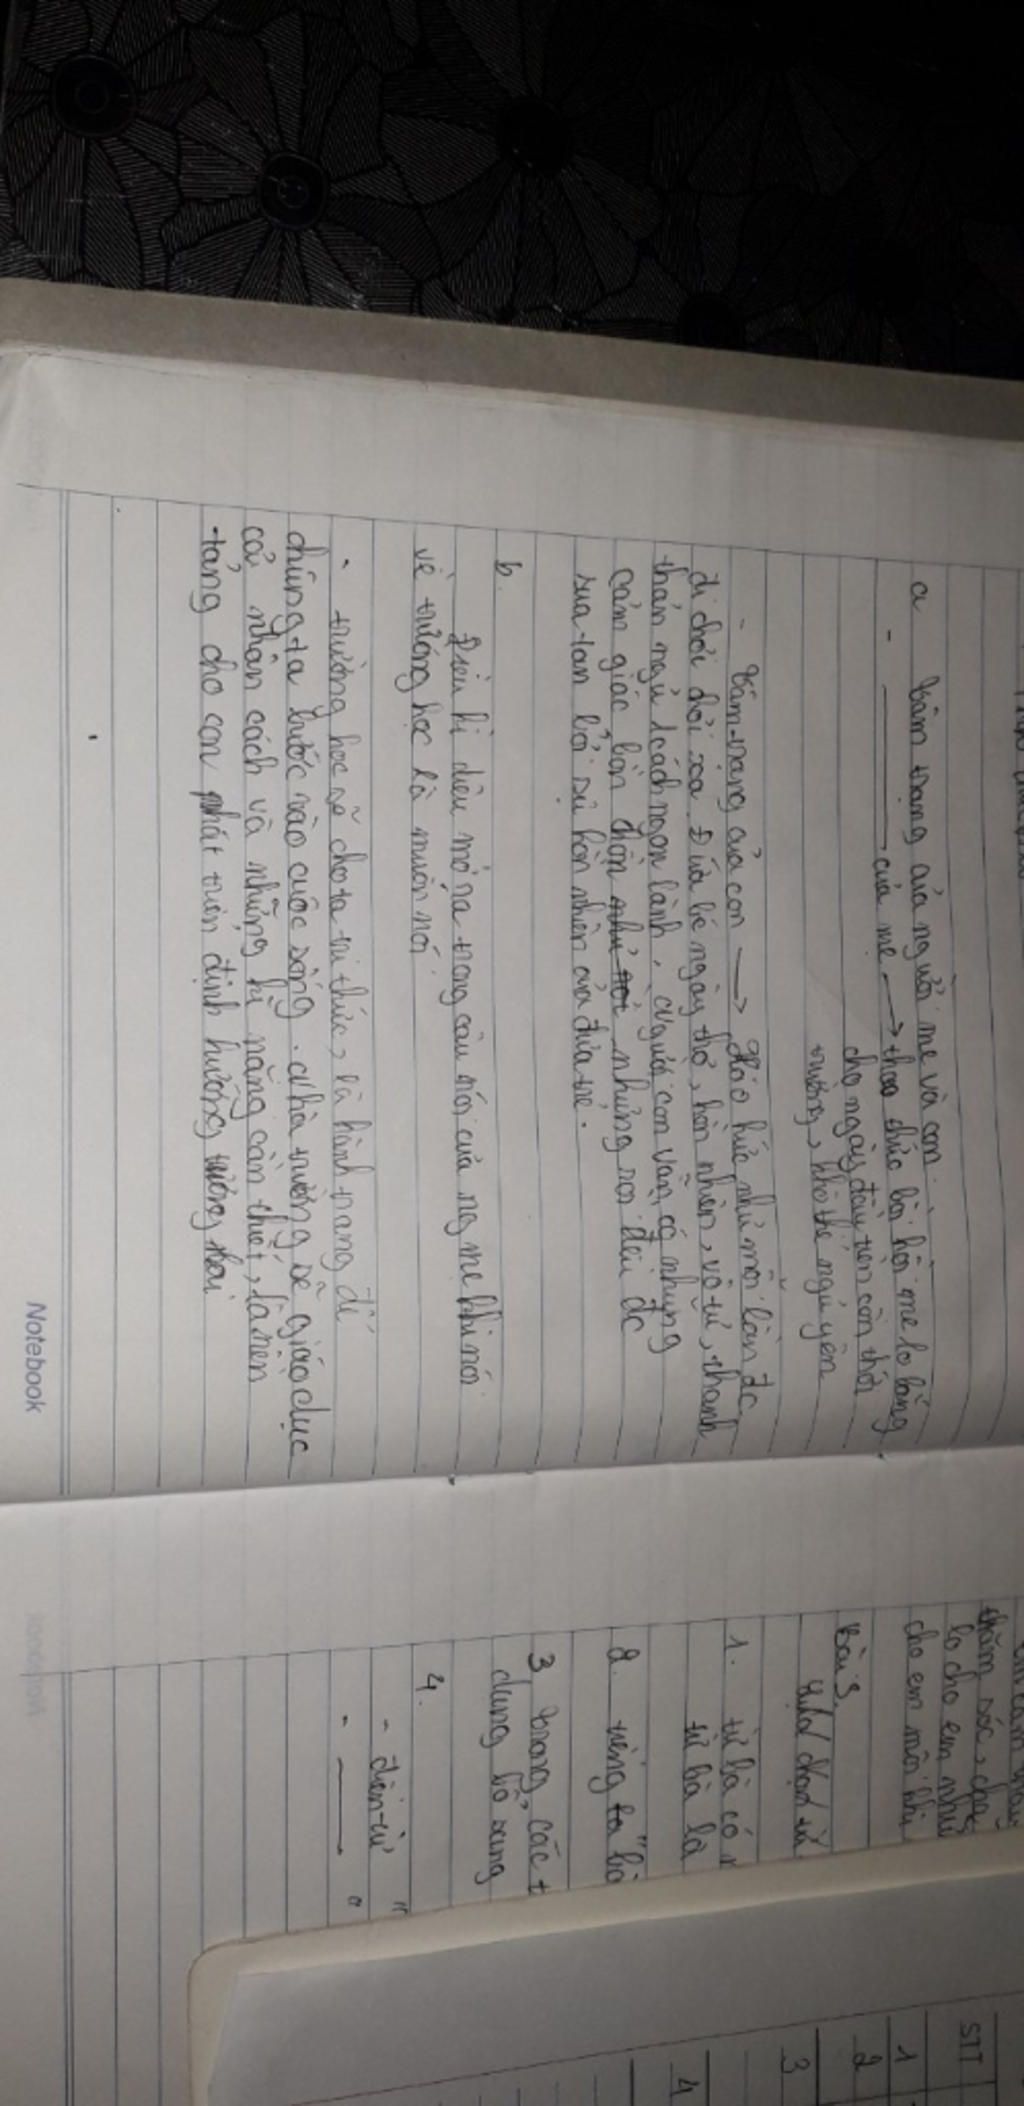 a Tâm trạng của người mẹ và con.
- ——— của mẹ → thao thức bồi hồi mẹ lo lắng
cho ngày đầu tiên còn thơ
trường, khô thể ngủ yên
- Tâm trạng của con → Háo hức như mỗi lần đc
đi chơi chơi xa. Đứa bé ngây thơ, hồn nhiên, vô tư, thanh
thản ngủ 1 cách ngon lành, người con vẫn có những
cảm giác bồn chồn những rồi đều đc
xua tan bởi sự hồn nhiên của đứa trẻ.
b.
Điều kì diệu mở ra trong câu nói của ng mẹ khi nói
về trường học là muốn nói
- trường học sẽ cho ta tri thức, là hành trang để
chúng ta bước vào cuộc sống. Nhà trường sẽ giáo dục
cả nhân cách và những kĩ năng cần thiết, là nền
tảng cho con phát triển định hướng tương lai
Notebook
chăm sóc, cha
lo cho em như
cho em mỗi khi
Bài 3.
1. từ bà có
từ bà là
2. tiếng ta "bà
3 trong các t
dung bổ sung
4.
- điền từ "
- ——— "
STT
1
2
3
4